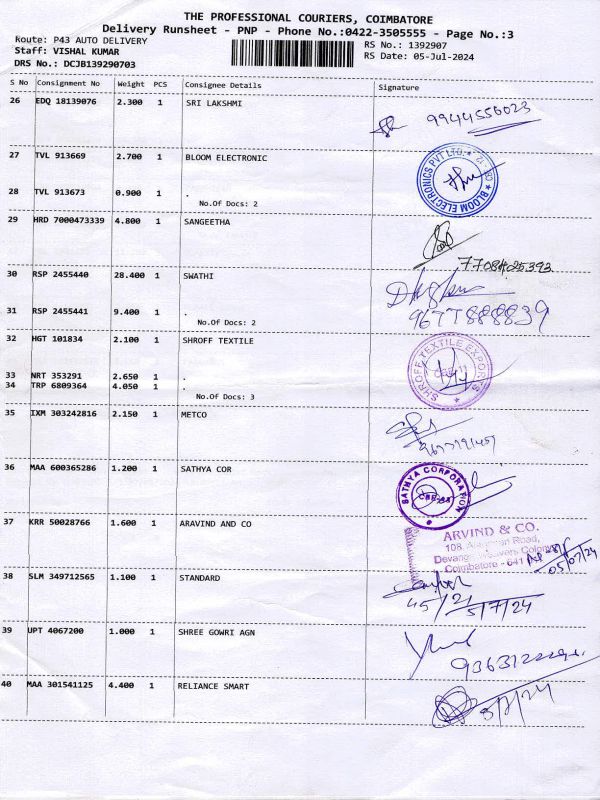 THE PROFESSIONAL COURIERS, COIMBATORE
Delivery Runsheet - PNP - Phone No.:0422-3505555 - Page No.:3
Route: P43 AUTO DELIVERY
Staff: VISHAL KUMAR
DRS No.: DCJB139290703
RS No.: 1392907
RS Date: 05-Jul-2024
S No Consignment No Weight PCS Consignee Details Signature
26 EDQ 18139076 2.300 1 SRI LAKSHMI
9944556023
27 TVL 913669 2.700 1 BLOOM ELECTRONIC
BLOOM ELECTRONICS PVT LTD.
28 TVL 913673 0.900 1 .
No.Of Docs: 2
29 HRD 7000473339 4.800 1 SANGEETHA
7708425393
30 RSP 2455440 28.400 1 SWATHI
31 RSP 2455441 9.400 1 .
No.Of Docs: 2
9677888839
32 HGT 101834 2.100 1 SHROFF TEXTILE
SHROFF TEXTILE EXPORTS
33 NRT 353291 2.650 1 .
34 TRP 6809364 4.050 1 .
No.Of Docs: 3
35 IXM 303242816 2.150 1 METCO
36 MAA 600365286 1.200 1 SATHYA COR
SATHYA CORPORATION
37 KRR 50028766 1.600 1 ARAVIND AND CO
ARVIND & CO.
108, Road,
Devanga Weavers Colony
Coimbatore - 641
05/07/24
38 SLM 349712565 1.100 1 STANDARD
5/7/24
39 UPT 4067200 1.000 1 SHREE GOWRI AGN
40 MAA 301541125 4.400 1 RELIANCE SMART
5/7/24